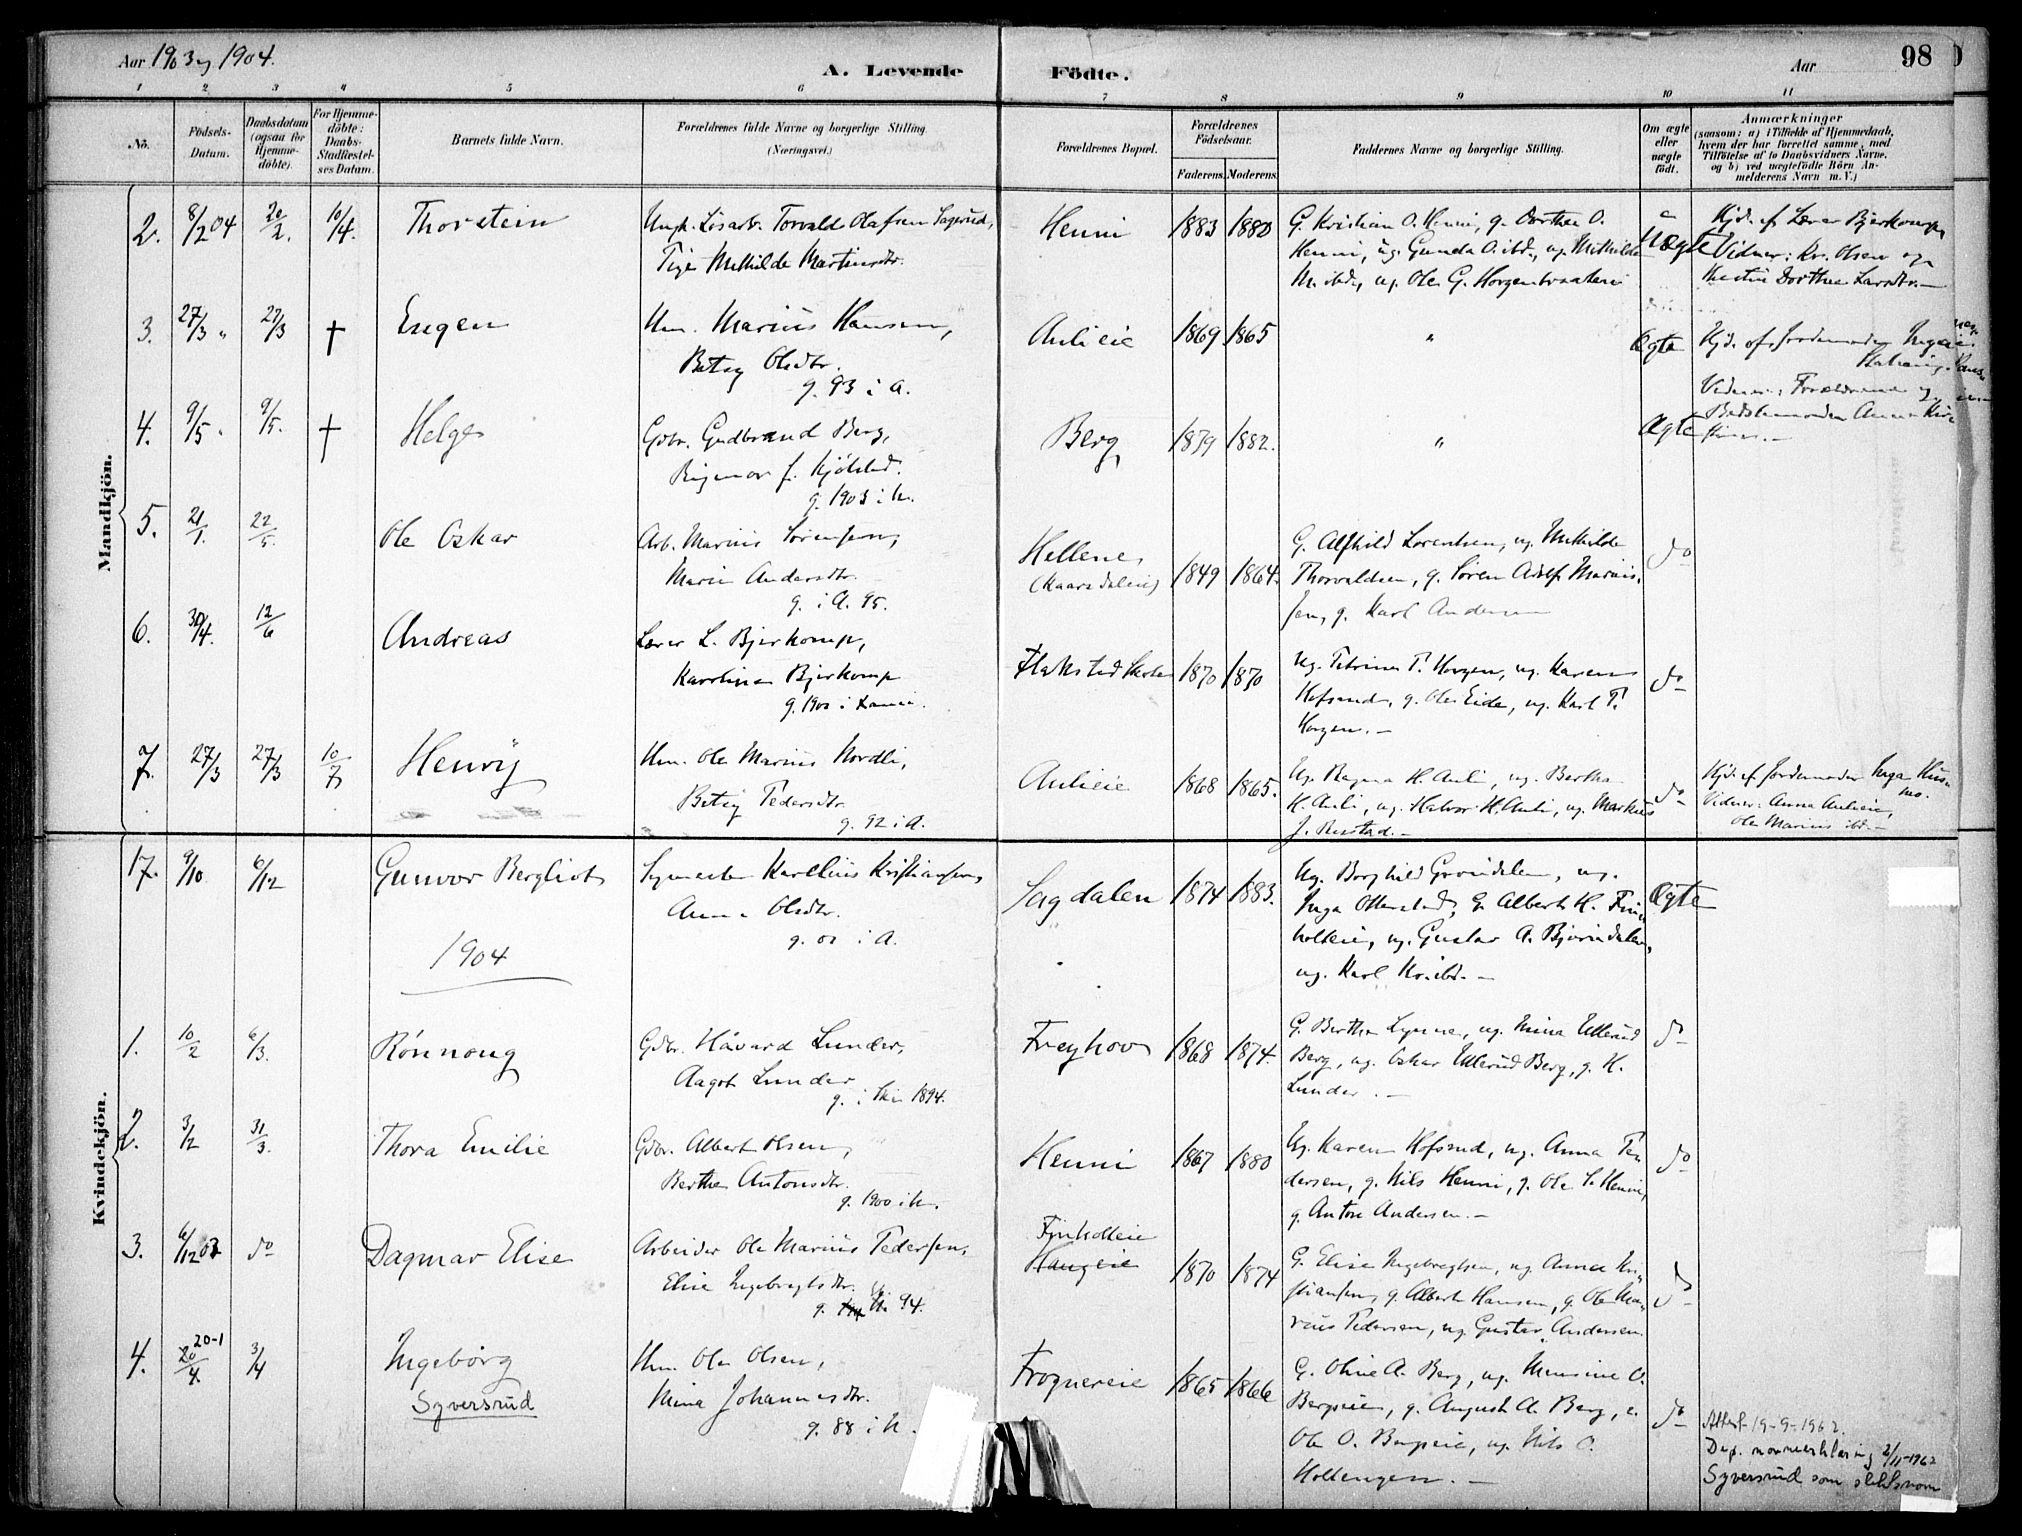 Aar 1903 og 1904.
A. Levende Födte.
Aar
98
1 2 3 4 5 6 7 8 9 10 11
No.
Födsels-
Datum.
Daabsdatum
(ogsaa for
Hjemme-
döbte).
For Hjemme-
döbte:
Daabs-
Stadfæstel-
ses Datum.
Barnets fulde Navn.
Forældrenes fulde Navne og borgerlige Stilling.
(Næringsvei.)
Forældrenes Bopæl.
Forældrenes
Födselsaar.
Faderens. Moderens.
Faddernes Navne og borgerlige Stilling.
Om ægte
eller
uægte
födt.
Anmærkninger
(saasom: a) i Tilfælde af Hjemmedaab,
hvem der har forrettet samme, med
Tilföielse af to Daabsvidners Navne,
og b) ved uægtefödte Börn An-
melderens Navn m. V.)
Mandkjön.
2. 8/2 04 20/2. 10/4. Thorstein
Ungk. Løsarb. Torvald Olafsen Sagerud,
Pige Mathilde Martinsdtr.
Henni 1883 1880
G. Kristian O. Henni, g. Dorthea O.
Henni, ug. Gunda O. ibd., ug. Mathilde
M. ibd., ug. Ole G. Horgenbraaten
Uægte
Hjd. af Lærer Bjerkomp
Vidner: Kr. Olsen og
Dorthea Larsdtr. —
3. 27/3 " 27/3 † Eugen
Hm. Marius Hansen,
Betsy Olsdtr.
g. 93 i A.
Aulieie 1869 1865 "
Ægte
Hjd. af Jordemoder Inga
Vidner: Forældrene og
Bedstemoderen Anna
4. 9/5 " 9/5. † Helge
Gdbr. Gudbrand Berg,
Rigmor f. Kjölstad.
g. 1903 i N.
Berg 1879 1882. "
Ægte
5. 21/1. 22/5. Ole Oskar
Arb. Marius Sörensen,
Marie Andersdtr.
g. i A. 95.
Hellene
1849 1864.
G. Alfhild Lorentsen, ug. Mathilde
Thorvaldsen, g. Sören Adolf Marius-
sen, g. Karl Andersen
do
6. 30/4. 12/6 Andreas
Lærer L. Bjerkomp,
Karoline Bjerkomp
g. 1900 i
Flakstad Skole 1870 1870
Ug. Petrine P. Horgen, ug. Karen
Hofsrud, g. Ole Eide, ug. Karl P.
Horgen. —
do
7. 27/3 27/3 10/7 Henry
Hm. Ole Marius Nordli,
Betsy Pedersdtr.
g. 92 i A.
Aulieie 1868 1865.
Ug. Ragna H. Auli, ug. Bertha
H. Auli, ug. Halvor H. Auli, ug. Markus
J. Rustad. —
do
Hjd. af Jordemoder Inga Hus-
mo.
Vidner: Anna Aulieie,
Ole Marius ibd. —
Kvindekjön.
17. 9/10 6/12 Gunvor Bergliot
Karelius Kristiansen,
Anna Olsdtr.
g. 02 i A.
Sagdalen 1874 1883.
Ug. Borghild Gröndalen, ug.
Inga Otterstad, g. Albert H. Fin-
holteie, ug. Gustav A. Bjørndalen,
ug. Karl Kr. ibd. —
Ægte
1904
1. 10/2 6/3. Rönnoug
Gdbr. Håvard Lunder,
Aagot Lunder
g. i 1894.
Freyhov 1868 1874.
G. Berthe Lynne, ug. Mina Ullerud
Berg, ug. Oskar Ullerud Berg, g. H.
Lunder. —
do
2. 3/2 31/3. Thora Emilie
Gdbr. Albert Olsen,
Berthe Antonsdtr.
g. 1900 i N.
Henni 1867 1880
Ug. Karen Hofsrud, ug. Anna Pe-
dersen, g. Nils Henni, g. Ole L. Henni,
g. Anton Andersen. —
do
3. 6/12 03 do Dagmar Elise
Arbeider Ole Marius Pedersen,
Elise Ingebregtsdtr.
g. N. 94.
Finholteie
Haugeie
1870 1874
G. Elise Ingebregtsen, ug. Anna Kri-
stiansen, g. Albert Hansen, g. Ole Ma-
rius Pedersen, ug. Gustav Andersen.
do
4. 20-1 20/4. 3/4 Ingebörg
Syversrud
Hm. Ole Olsen,
Mina Johannesdtr.
g. 88 i N.
Frognereie 1865 1866
G. Oline A. Berg, ug. Mensine O.
Bergseie, g. August A. Berg, e.
Ole O. Bergseie, ug. Nils O.
Holtengen. —
do
Attest 19-9-1962.
Dep. navneerklæring 2/11-1962
Syversrud som slektsnavn